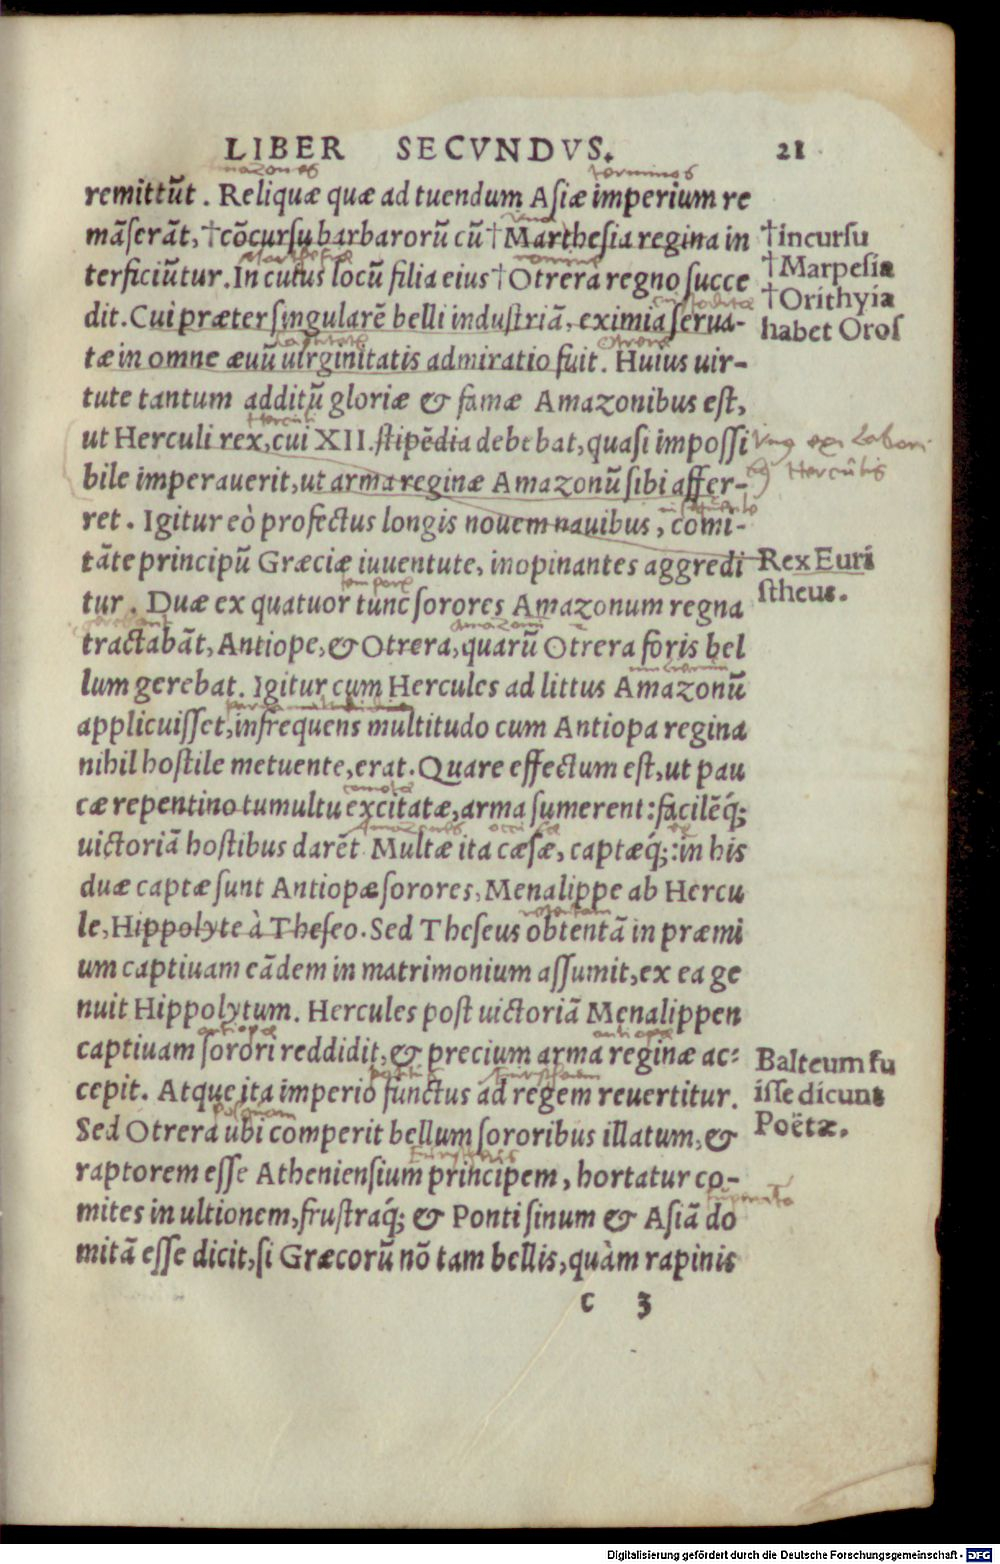 LIBER SECVNDVS. 21
amazones terminos
remittūt. Reliquæ quæ ad tuendum Asiæ imperium re
māserāt, †cōcursu barbarorū cū †Marthesia regina in
terficiūtur. In cuius locū filia eius †Otrera regno succe
dit. Cui præter singularē belli industriā, eximia serua-
tæ in omne æuū uirginitatis admiratio fuit. Huius uir-
tute tantum additū gloriæ & famæ Amazonibus est,
ut Herculi rex, cui XII. stipēdia debebat, quasi impossi
bile imperauerit, ut arma reginæ Amazonū sibi affer-
ret. Igitur eò profectus longis nouem nauibus, comi-
tāte principū Græciæ iuuentute, inopinantes aggredi
tur. Duæ ex quatuor tunc sorores Amazonum regna
tractabāt, Antiope, & Otrera, quarū Otrera foris bel
lum gerebat. Igitur cum Hercules ad littus Amazonū
applicuisset, infrequens multitudo cum Antiopa regina
nihil hostile metuente, erat. Quare effectum est, ut pau
cæ repentino tumultu excitatæ, arma sumerent: facilēq́;
uictoriā hostibus darēt. Multæ ita cæsæ, captæq́;: in his
duæ captæ sunt Antiopæ sorores, Menalippe ab Hercu
le, Hippolyte à Theseo. Sed Theseus obtentā in præmi
um captiuam eādem in matrimonium assumit, ex ea ge
nuit Hippolytum. Hercules post uictoriā Menalippen
antiopæ antiopæ
captiuam sorori reddidit, & precium arma reginæ ac-
cepit. Atque ita imperio functus ad regem reuertitur.
Sed Otrera ubi comperit bellum sororibus illatum, &
raptorem esse Atheniensium principem, hortatur co-
mites in ultionem, frustraq́; & Ponti sinum & Asiā do
mitā esse dicit, si Græcorū nō tam bellis, quàm rapinis
c 3
†incursu
†Marpesia
†Orithyia
habet Oros
Rex Euri
stheus.
Balteum fu
isse dicunt
Poëtæ.
Digitalisierung gefördert durch die Deutsche Forschungsgemeinschaft - DFG